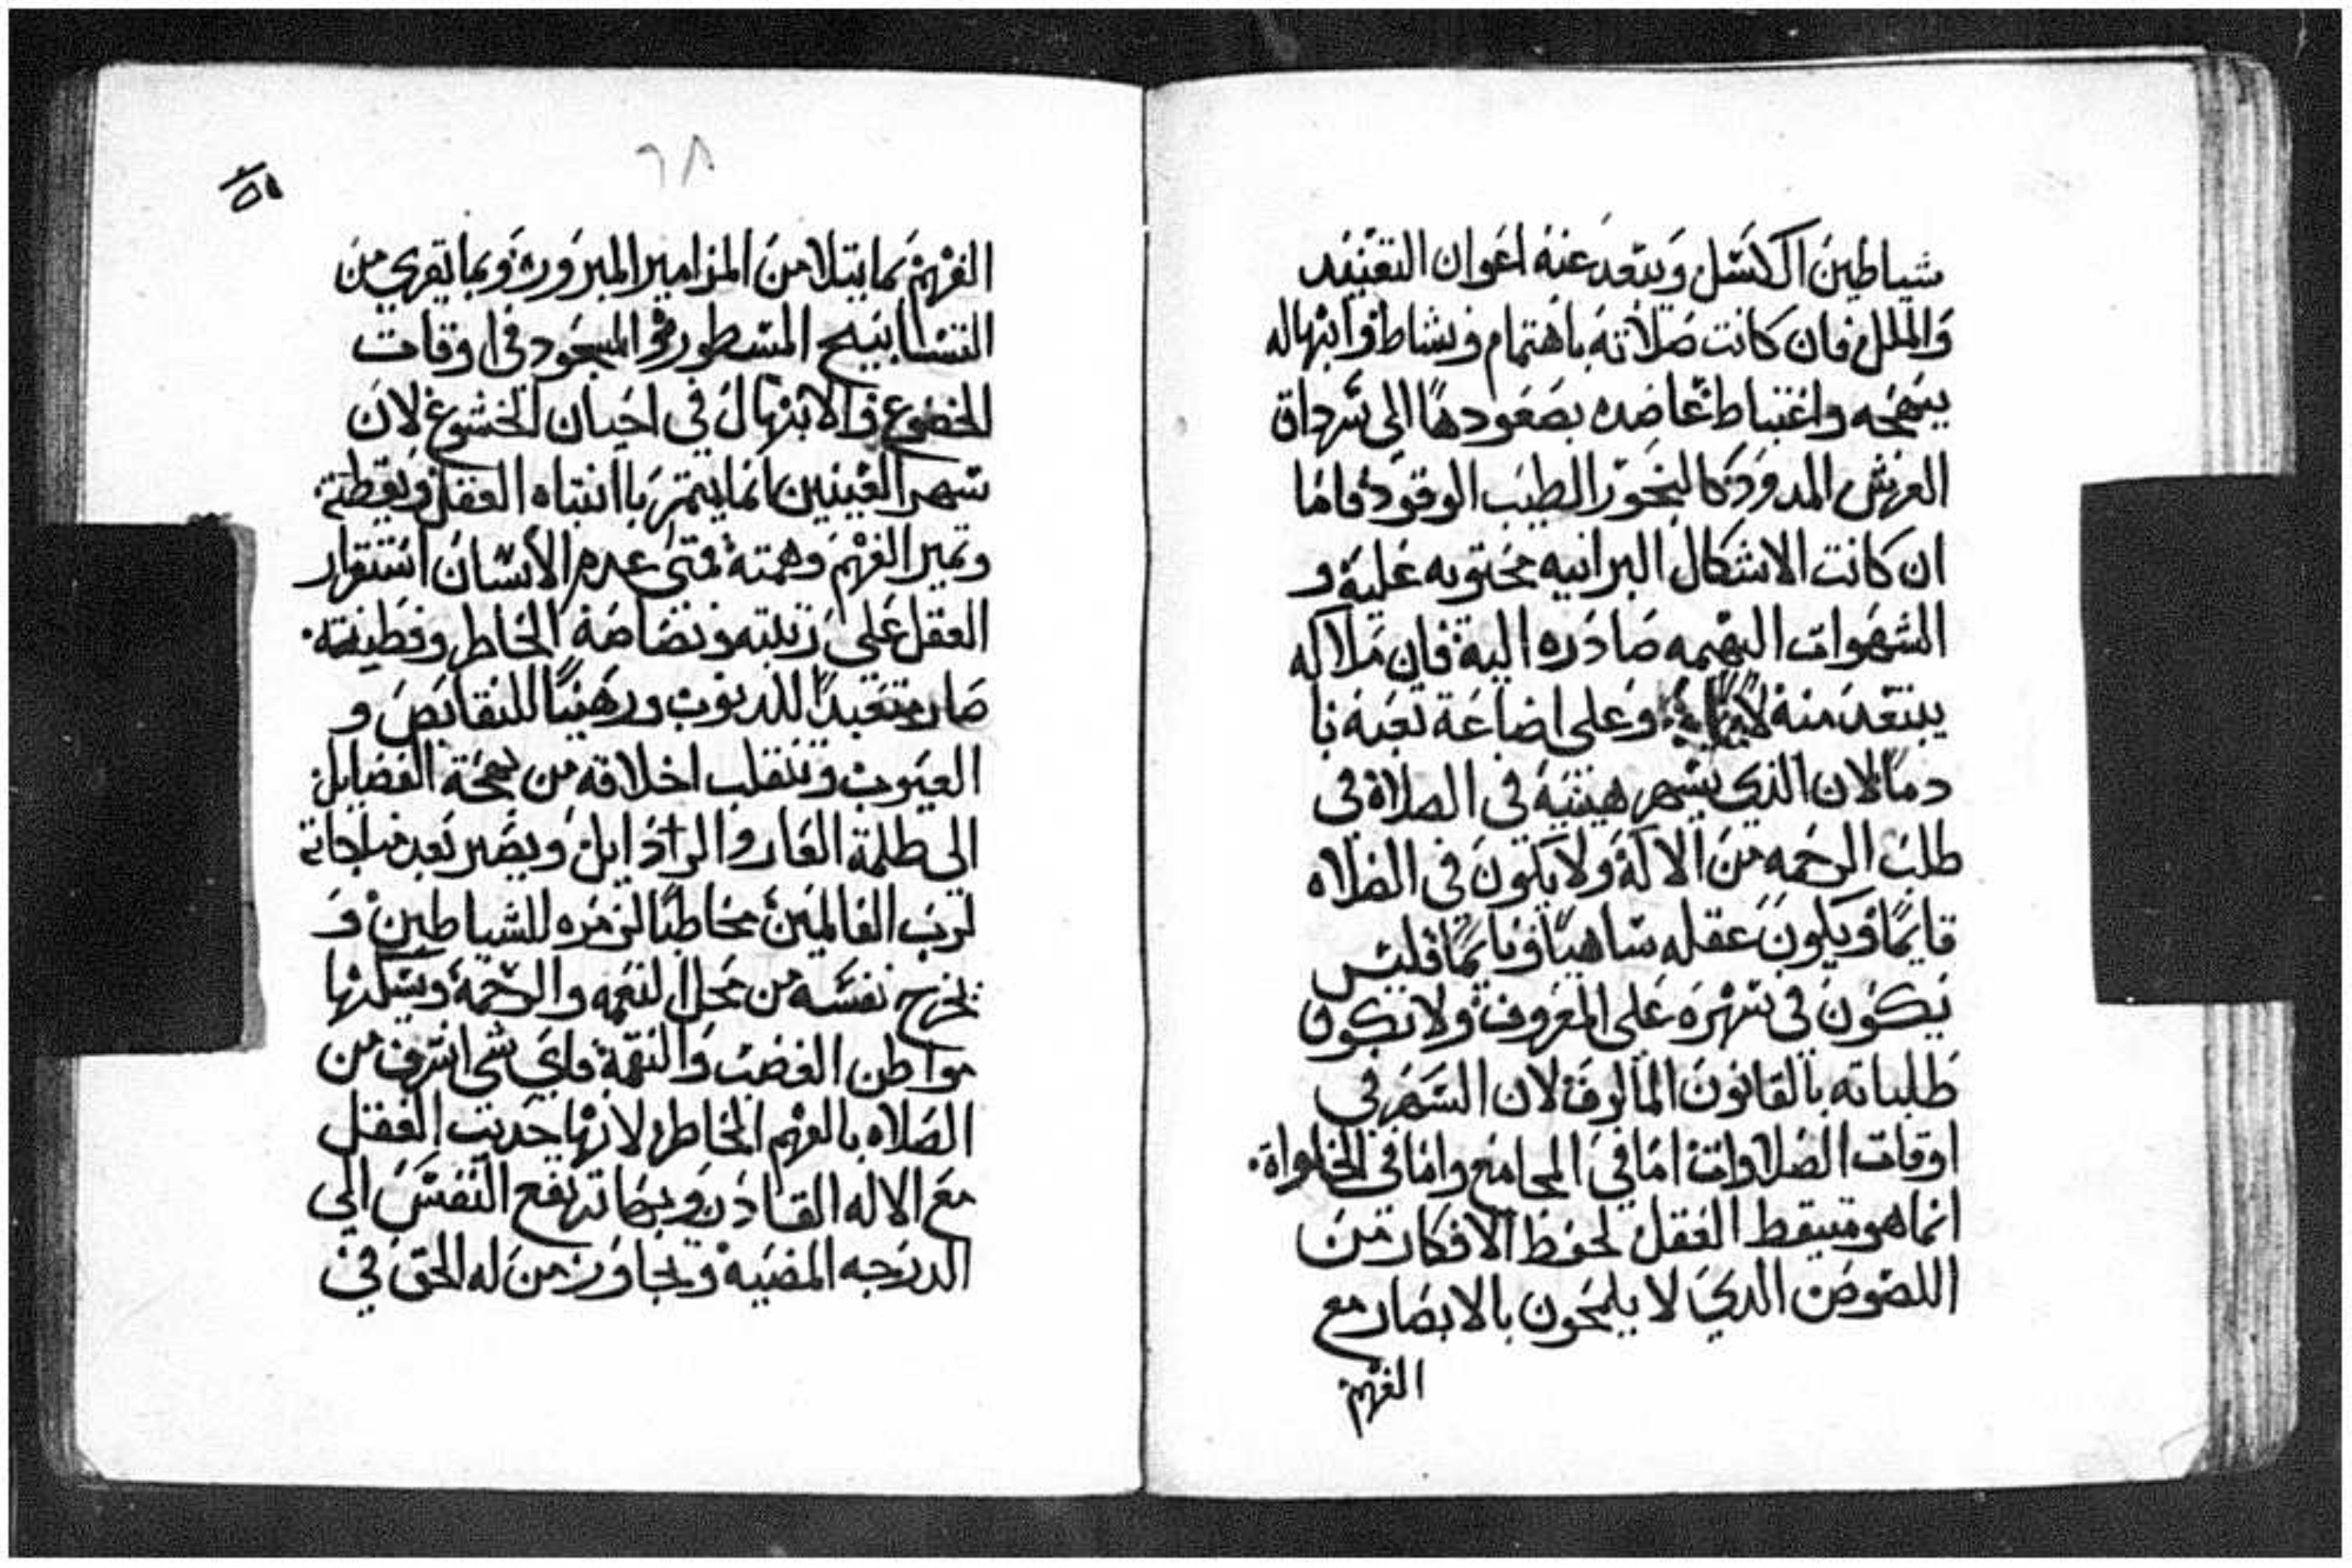 شياطين الكسل ويبتعد عنه اعوان التفنيد
والملل فان كانت صلاته باهتمام ونشاط وابتهاله
ببهجه واغتباط عاضده بصعودها الى شهداق
العرش الممدود كالبخور الطيب الوقود فاما
ان كانت الاشكال البرانيه محتويه عليه و
الشهوات البهيمه صادره اليه فان ملاكه
يبتعد منه وعلى اضاعة تعبه نا
دما لان الذي يسهر هيئيه في الصلاة في
طلب الرحمه من الاله ولا يكون في الصلاه
قايما ويكون عقله ساهيا ونايما فليس
يكون في سهره على المعروف ولا تكون
طلباته بالقانون المالوف لان السهر في
اوقات الصلاوات اما في المجامع واما في الخلواة
انما هو تيقظ العقل لحفظ الافكار من
اللصوص الذي لا يلمحون بالابصار مع
الفهم
٦٨
الفهم بما يتلا من المزامير المبروره وبما يقري من
التسابيح المسطوره والسجود في اوقات
الخضوع والابتهال في احيان الخشوع لان
سهر العينين انما يتمر باانتباه العقل ويقظته
وتميز الفهم وهمته فمتى عدم الانسان استقرار
العقل على رتبته ونضاضة الخاطر وفطينته
صار متعبدا للديون ورهينا للنقايص و
العيوب وتنقلب اخلاقه من بهجة الفضايل
الى ظلمة العار والراذايل ويصير بعد مناجاته
لرب العالمين مخاطبا لزمره للشياطين و
يخرج نفسه من محل النعمه والرحمة ويسكنها
مواطن الغضب والنقمة فاي شي اشرف من
الصلاه بالفهم الخاطر لانها حديت العقل
مع الاله القادر وبها ترتفع النفس الى
الدرجه المضيه وتجاور من له الحق في